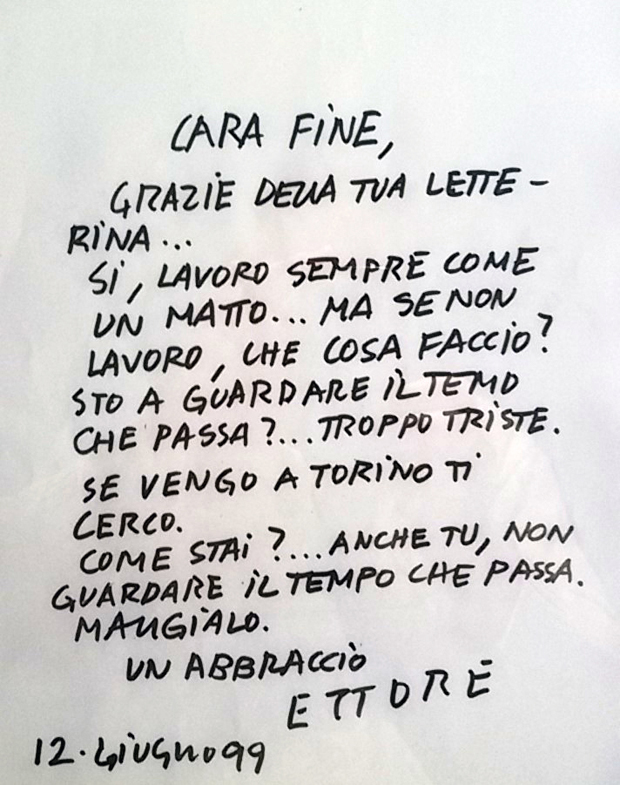 CARA FINE,
GRAZIE DELLA TUA LETTE-
RINA...
SI, LAVORO SEMPRE COME
UN MATTO... MA SE NON
LAVORO, CHE COSA FACCIO?
STO A GUARDARE IL TEMO
CHE PASSA?...TROPPO TRISTE.
SE VENGO A TORINO TI
CERCO.
COME STAI?...ANCHE TU, NON
GUARDARE IL TEMPO CHE PASSA.
MANGIALO.
UN ABBRACCIO
ETTORE
12.GIUGNO 99